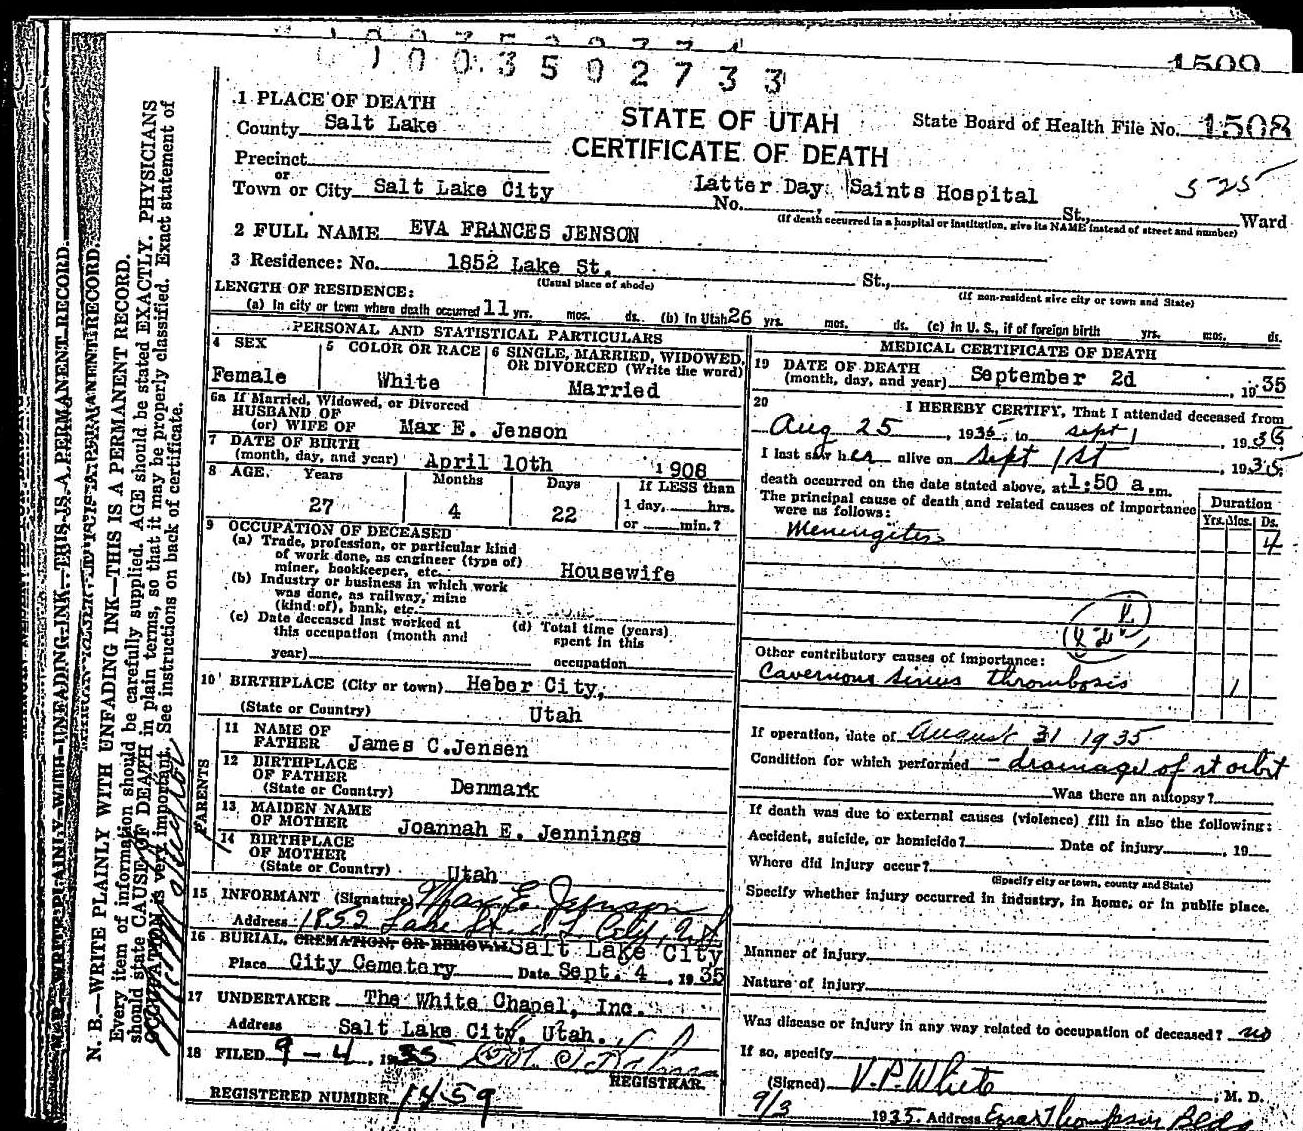 1509
1003502733
1 PLACE OF DEATH
County Salt Lake
STATE OF UTAH
CERTIFICATE OF DEATH
State Board of Health File No. 1508
Precinct
or
Town or City Salt Lake City
Latter Day Saints Hospital
No. St., Ward
525
(If death occurred in a hospital or institution, give its NAME instead of street and number)
2 FULL NAME EVA FRANCES JENSON
3 Residence: No. 1852 Lake St. St.,
(Usual place of abode) (If non-resident give city or town and State)
LENGTH OF RESIDENCE:
(a) In city or town where death occurred 11 yrs. mos. ds. (b) In Utah 26 yrs. mos. ds. (c) In U. S., if of foreign birth yrs. mos. ds.
PERSONAL AND STATISTICAL PARTICULARS
4 SEX
Female
5 COLOR OR RACE
White
6 SINGLE, MARRIED, WIDOWED,
OR DIVORCED (Write the word)
Married
6a If Married, Widowed, or Divorced
HUSBAND OF
(or) WIFE OF Max E. Jenson
7 DATE OF BIRTH
(month, day, and year) April 10th 1908
8 AGE. Years Months Days If LESS than
27 4 22 1 day, hrs.
or min.?
9 OCCUPATION OF DECEASED
(a) Trade, profession, or particular kind
of work done, as engineer (type of)
miner, bookkeeper, etc. Housewife
(b) Industry or business in which work
was done, as railway, mine
(kind of), bank, etc.
(c) Date deceased last worked at
this occupation (month and
year)
(d) Total time (years)
spent in this
occupation
10 BIRTHPLACE (City or town) Heber City,
(State or Country) Utah
PARENTS
11 NAME OF
FATHER James C. Jensen
12 BIRTHPLACE
OF FATHER
(State or Country) Denmark
13 MAIDEN NAME
OF MOTHER Joannah E. Jennings
14 BIRTHPLACE
OF MOTHER
(State or Country) Utah
15 INFORMANT (Signature) Max E. Jenson
Address 1852 Lake St. S L City, Ut
16 BURIAL, CREMATION, OR REMOVAL Salt Lake City
Place City Cemetery Date Sept. 4, 1935
17 UNDERTAKER The White Chapel, Inc.
Address Salt Lake City, Utah.
18 FILED 9-4, 1935
REGISTRAR.
REGISTERED NUMBER 1459
MEDICAL CERTIFICATE OF DEATH
19 DATE OF DEATH
(month, day, and year) September 2d, 1935
20 I HEREBY CERTIFY, That I attended deceased from
Aug 25, 1935, to Sept 1, 1935
I last saw her alive on Sept 1st, 1935
death occurred on the date stated above, at 1:50 a.m.
The principal cause of death and related causes of importance
were as follows:
Duration
Yrs. Mos. Ds.
Meningitis 4
Other contributory causes of importance:
Cavernous sinus thrombosis 1
If operation, date of August 31 1935
Condition for which performed - drainage of rt orbit
Was there an autopsy?
If death was due to external causes (violence) fill in also the following:
Accident, suicide, or homicide? Date of injury, 19
Where did injury occur?
(Specify city or town, county and State)
Specify whether injury occurred in industry, in home, or in public place.
Manner of injury
Nature of injury
Was disease or injury in any way related to occupation of deceased? no
If so, specify
(Signed) V. P. White, M. D.
9/3 1935 Address Ezra Thompson Bldg
N. B.—WRITE PLAINLY WITH UNFADING INK—THIS IS A PERMANENT RECORD.
Every item of information should be carefully supplied. AGE should be stated EXACTLY. PHYSICIANS
should state CAUSE OF DEATH in plain terms, so that it may be properly classified. Exact statement of
OCCUPATION is very important. See instructions on back of certificate.